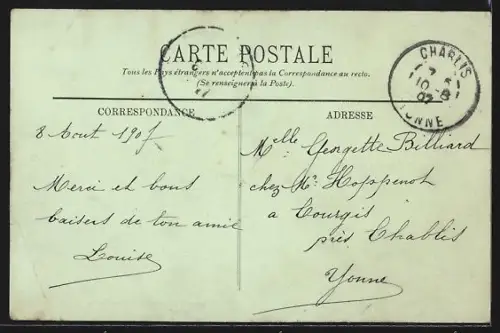 CARTE POSTALE
Tous les Pays étrangers n'acceptent pas la Correspondance au recto.
(Se renseigner à la Poste).
CHABLIS
10 - 8
07
YONNE
CORRESPONDANCE
ADRESSE
8 Aout 1907
Merci et bons
baisers de ton amie
Louise
Melle Georgette Billiard
chez Mr Hoppenot
a Courgis
près Chablis
Yonne